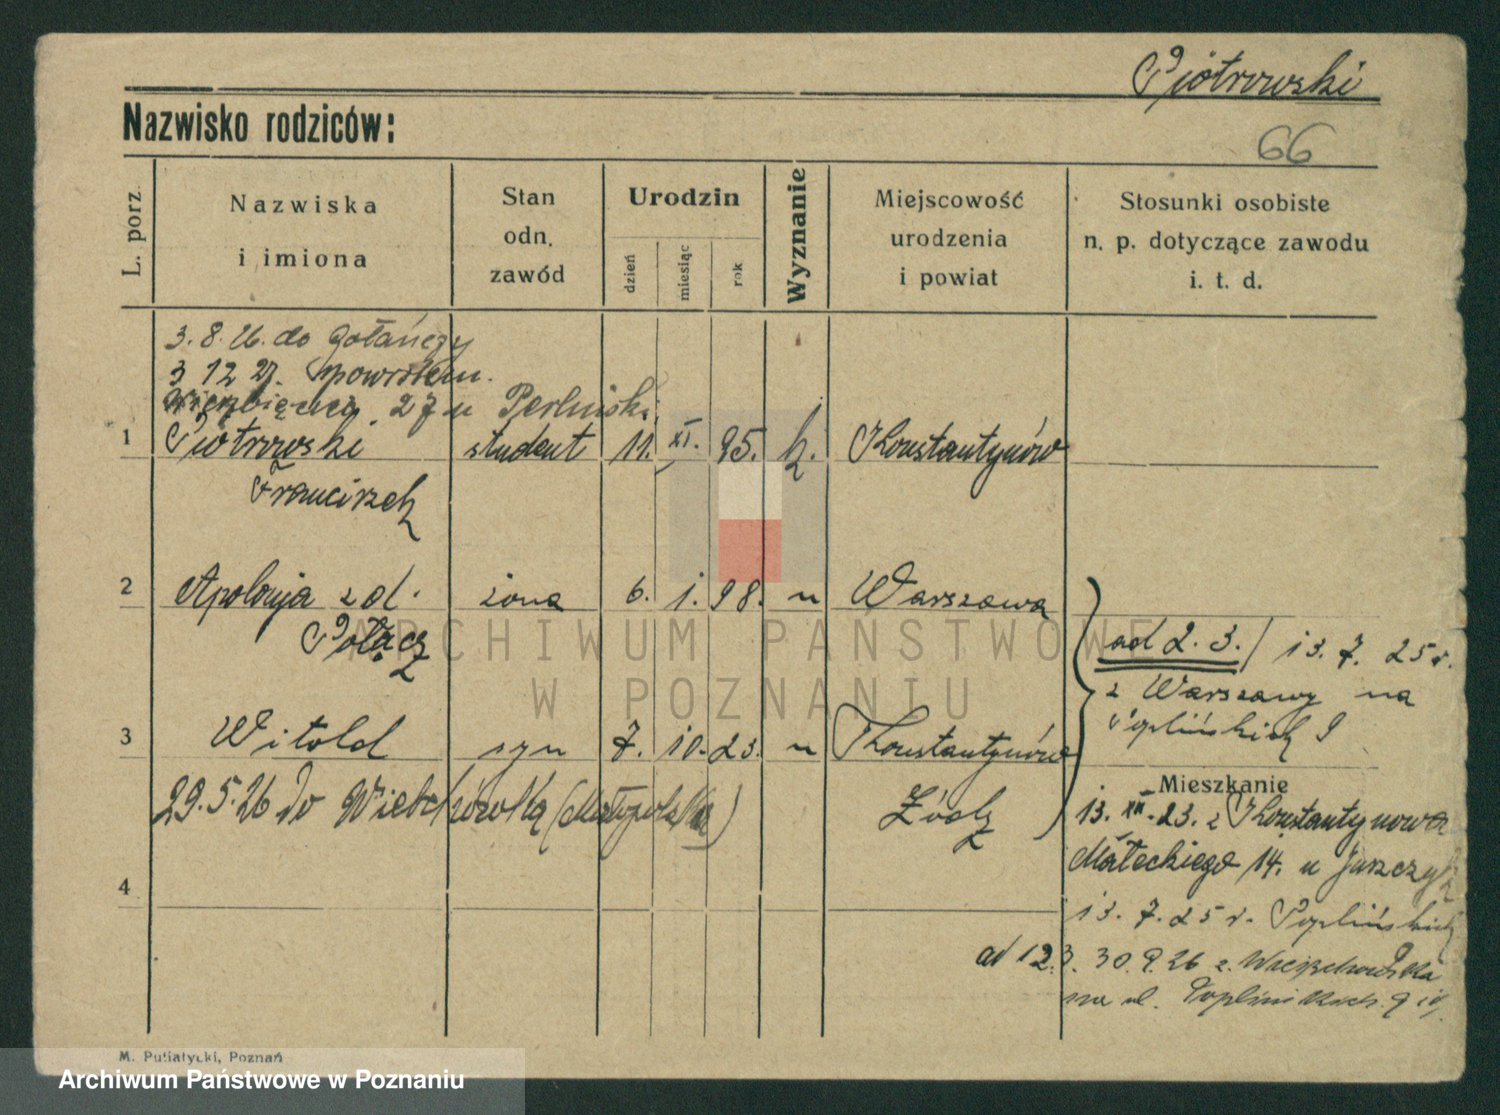 Piotrowski
Nazwisko rodziców:
66
L. porz.
Nazwiska
i imiona
Stan
odn.
zawód
Urodzin
dzień
miesiąc
rok
Wyznanie
Miejscowość
urodzenia
i powiat
Stosunki osobiste
n. p. dotyczące zawodu
i. t. d.
3. 8. 26. do Gołańczy
3 12 27. powrotem.
27 u Perliński
1 Piotrowski student 11. XI. 95. k. Konstantynów
Franciszek
2 Apolonja z d. żona 6. 1. 98. u Warszawa
Połącz
ad 2. 3. / 13. 7. 25 r.
z Warszawy na
Poplińskich 9
3 Witold syn 7. 10. 23. u Konstantynów
29. 5. 26 do (Małopolska)
Łódź
Mieszkanie
13. XII. 23. z Konstantynowa
Małeckiego 14. u Juszczyk
13. 7. 25 r. Poplińskich
4
ad 1 2. 3. 30. 9. 26 z
na ul. Poplińskich. 9
M. Putiatycki, Poznań
ARCHIWUM PAŃSTWOWE
W POZNANIU
Archiwum Państwowe w Poznaniu